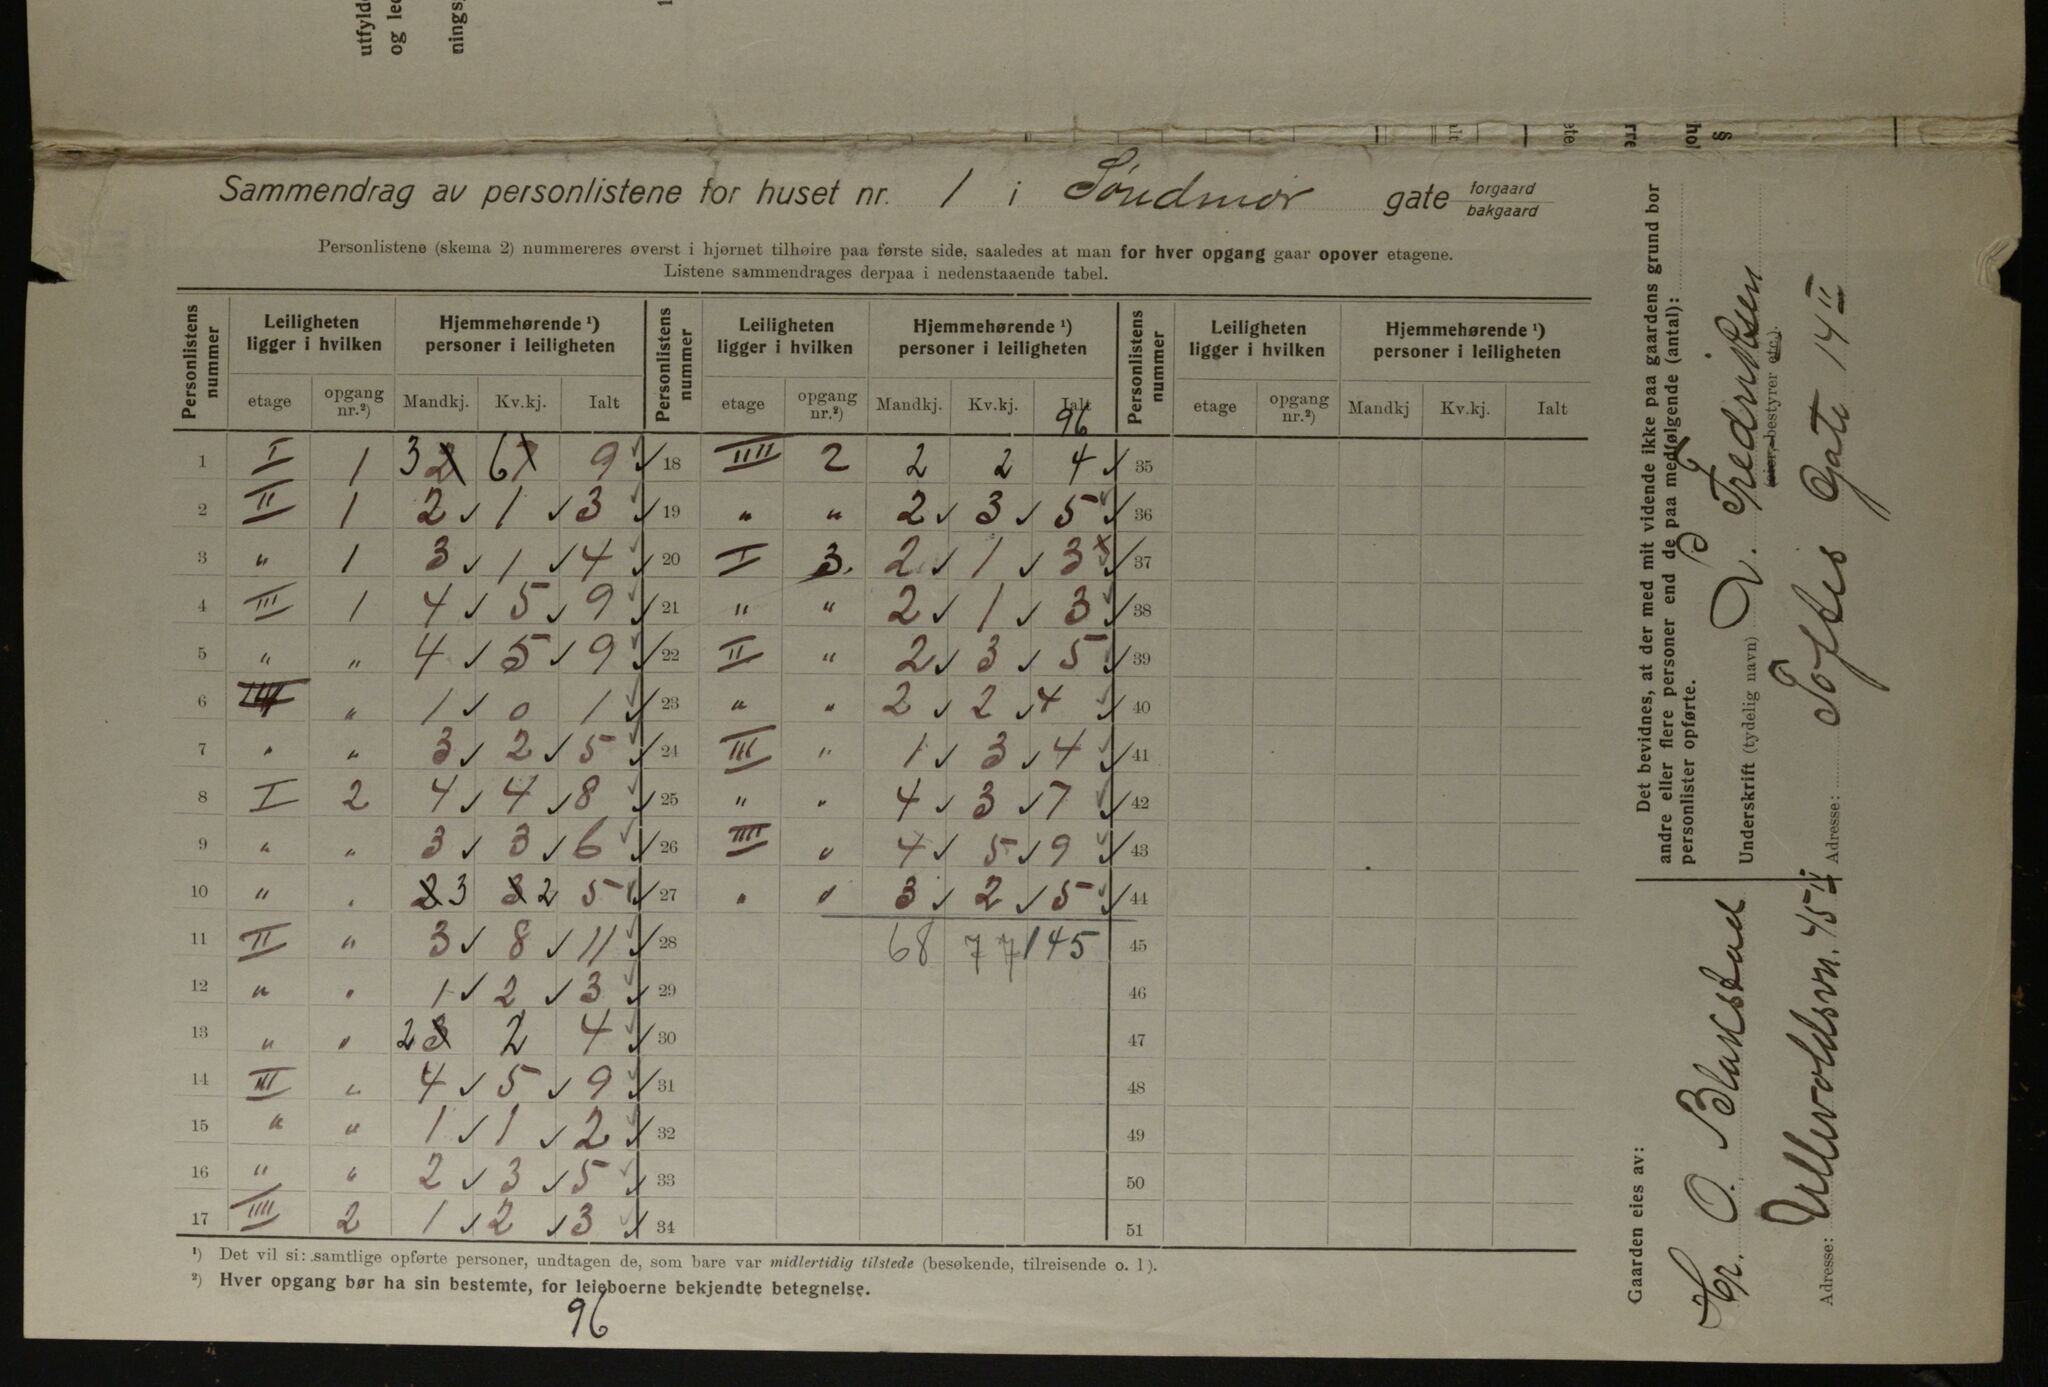 utfylde
og led
nings
§
hol
Sammendrag av personlistene for huset nr. 1 i Søndmør gate forgaard bakgaard
Personlistene (skema 2) nummereres øverst i hjørnet tilhøire paa første side, saaledes at man for hver opgang gaar opover etagene.
Listene sammendrages derpaa i nedenstaaende tabel.
Personlistens nummer | Leiligheten ligger i hvilken | Hjemmehørende ¹) personer i leiligheten | Personlistens nummer | Leiligheten ligger i hvilken | Hjemmehørende ¹) personer i leiligheten | Personlistens nummer | Leiligheten ligger i hvilken | Hjemmehørende ¹) personer i leiligheten
etage | opgang nr.²) | Mandkj. | Kv.kj. | Ialt | etage | opgang nr.²) | Mandkj. | Kv.kj. | Ialt | etage | opgang nr.²) | Mandkj | Kv.kj. | Ialt
96
1 | I | 1 | 3 2 | 6 7 | 9 | 18 | IIII | 2 | 2 | 2 | 4 | 35
2 | II | 1 | 2 | 1 | 3 | 19 | " | " | 2 | 3 | 5 | 36
3 | " | 1 | 3 | 1 | 4 | 20 | I | 3. | 2 | 1 | 3 | 37
4 | III | 1 | 4 | 5 | 9 | 21 | " | " | 2 | 1 | 3 | 38
5 | " | " | 4 | 5 | 9 | 22 | II | " | 2 | 3 | 5 | 39
6 | IIII | " | 1 | 0 | 1 | 23 | " | " | 2 | 2 | 4 | 40
7 | " | " | 3 | 2 | 5 | 24 | III | " | 1 | 3 | 4 | 41
8 | I | 2 | 4 | 4 | 8 | 25 | " | " | 4 | 3 | 7 | 42
9 | " | " | 3 | 3 | 6 | 26 | IIII | " | 4 | 5 | 9 | 43
10 | " | " | 2 3 | 3 2 | 5 | 27 | " | " | 3 | 2 | 5 | 44
11 | II | " | 3 | 8 | 11 | 28 | 68 | 77 | 145 | 45
12 | " | " | 1 | 2 | 3 | 29 | 46
13 | " | " | 2 3 | 2 | 4 | 30 | 47
14 | III | " | 4 | 5 | 9 | 31 | 48
15 | " | " | 1 | 1 | 2 | 32 | 49
16 | " | " | 2 | 3 | 5 | 33 | 50
17 | IIII | 2 | 1 | 2 | 3 | 34 | 51
¹) Det vil si: samtlige opførte personer, undtagen de, som bare var midlertidig tilstede (besøkende, tilreisende o. l).
²) Hver opgang bør ha sin bestemte, for leieboerne bekjendte betegnelse.
96
Det bevidnes, at der med mit vidende ikke paa gaardens grund bor
andre eller flere personer end de paa medfølgende (antal):
personlister opførte.
Underskrift (tydelig navn) Fredriksen
(eier, bestyrer etc.).
Adresse: Toftes Gate 14 II
Gaarden eies av:
Hr. O. Blakstad
Adresse: Ullevoldsvn. 45 II